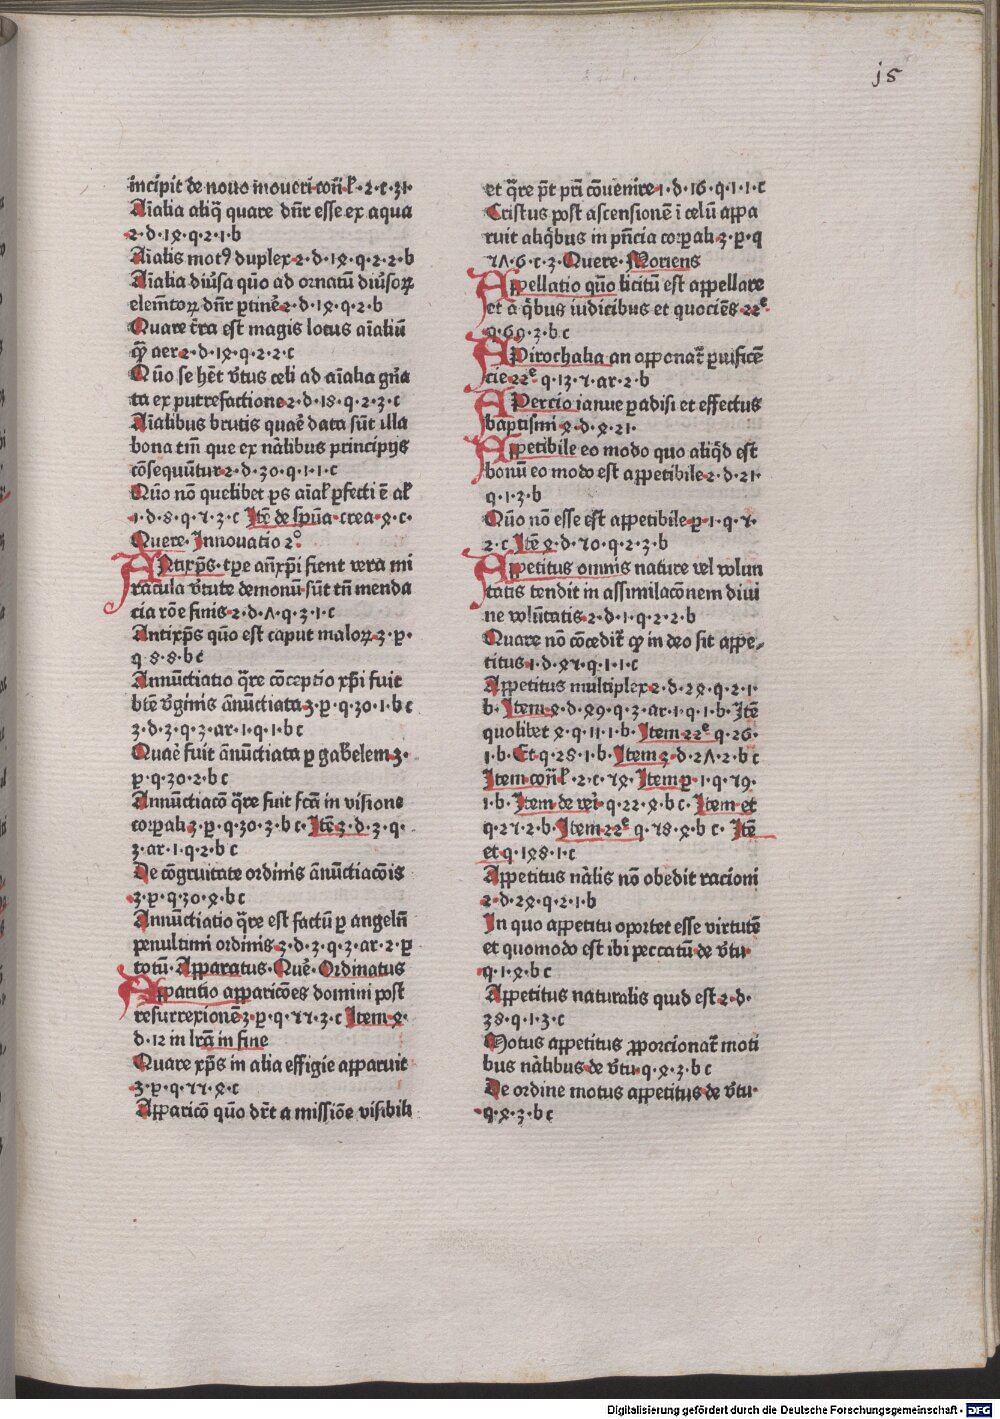 js
incipit de nouo moueri con̄ l̄·2·c·31·
Aīalia aliq̄ quare dn̄r esse ex aqua
2·d·14·q·2·1·b
Aīalis motꝰ duplex 2·d·14·q·2·2·b
Aīalia diūsa quō ad ornatū diūsoꝝ
elem̄toꝝ dn̄r ꝑtinē 2·d·14·q·2·b
Quare t̄ra est magis locus aīaliū
qꝫ aer 2·d·14·q·2·2·c
Qūo se hēt v̄tus celi ad aīalia gn̄a
ta ex putrefactione 2·d·18·q·2·3·c
Aīalibus brutis quaē data sūt illa
bona tm̄ que ex nālibus principijs
cōsequūtur 2·d·30·q·1·1·c
Qūo nō quelibet ꝑs aīal' ꝑfecti ē al'
1·d·8·q·7·3·c Itē de sp̄ūa crea·4·c·
Quere· Innouatio 2°
ANtixp̄s·tꝑe an̄xp̄i fient vera mi
racula v̄tute demonū sūt tn̄ menda
cia rōe finis 2·d·7·q·3·1·c
Antixp̄s quō est caput maloꝝ 3·p·
q·8·8·b c
Annūctiatio q̄re cōceptio xp̄i fuit
btē v̄ginis ānūctiata 3·p·q·30·1·b c
3·d·3·q·3·ar·1·q·1·b c
Quaē fuit ānūctiata ꝑ gab̄elem 3·
p·q·30·2·b c
Annūctiacō q̄re fuit fc̄ā in visione
corꝑali 3·p·q·30·3·b c· Itē 3·d·3·q·
3·ar·1·q·2·b c
De cōgruitate ordinis ānūctiacōis
3·p·q·30·4·b c
Annūctiatio q̄re est factū ꝑ angelū
penultimi ordinis 3·d·3·q·3·ar·2·ꝑ
totū· Apparatus· Quē· Ordinatus
APparitio apparicōes domini post
resurrexionē 3·p·q·55·3·c Item 4·
d·12 in lr̄ā in fine
Quare xp̄s in alia effigie apparuit
3·p·q·55·4·c
Apparicō quō dr̄t a missiōe visibili
et q̄re p̄t pri cōuenire 1·d·16·q·1·1·c
Cristus post ascensionē ī celū appa
ruit aliq̄bus in pn̄cia corꝑali 3·p·q
57·6·c·3· Quere· Moriens
APpellatio quō licitū est appellare
et a q̄bus iudicibus et quociēs 22ᵉ·
q·69·3·b c
APirochalia an opponat̄ ꝑuificē
cie 22ᵉ q·13·5·ar·2·b
APercio ianue ꝑadisi et effectus
baptismi 4·d·4·21·
APpetibile eo modo quo aliq̄d est
bonū eo modo est appetibile 2·d·21·
q·1·3·b
Qūo nō esse est appetibile p·1·q·5·
2·c Itē 4·d·50·q·2·3·b
APpetitus omnis nature vel volun
tatis tendit in assimilacōnem diui
ne volūtatis 2·d·1·q·2·2·b
Quare nō cōcedit̄ qꝫ in deo sit appe⸗
titus 1·d·45·q·1·1·c
Appetitus multiplex 2·d·24·q·2·1·
b· Item 4·d·49·q·3·ar·1·q·1·b· Itē
quolibet 4·q·11·1·b· Item 22ᵉ q·26·
1·b· Et q·28·1·b· Item 3·d·27·2·b c
Item con̄ l̄·2·c·54· Item p·1·q·59·
1·b· Item de vēi q·22·4·b c· Item et
q·25·2·b· Item 22ᵉ q·58·4·b c· Itē
et q·148·1·c
Appetitus nālis nō obedit racioni
2·d·24·q·2·1·b
In quo appetitu oportet esse virtutē
et quomodo est ibi peccatū de v̄tu·
q·1·4·b c
Appetitus naturalis quid est 2·d·
38·q·1·3·c
Motus appetitus ꝓporcionat̄ moti
bus nālibus de v̄tu q·4·3·b c
De ordine motus appetitus de v̄tu·
q·4·3·b c
Digitalisierung gefördert durch die Deutsche Forschungsgemeinschaft - DFG